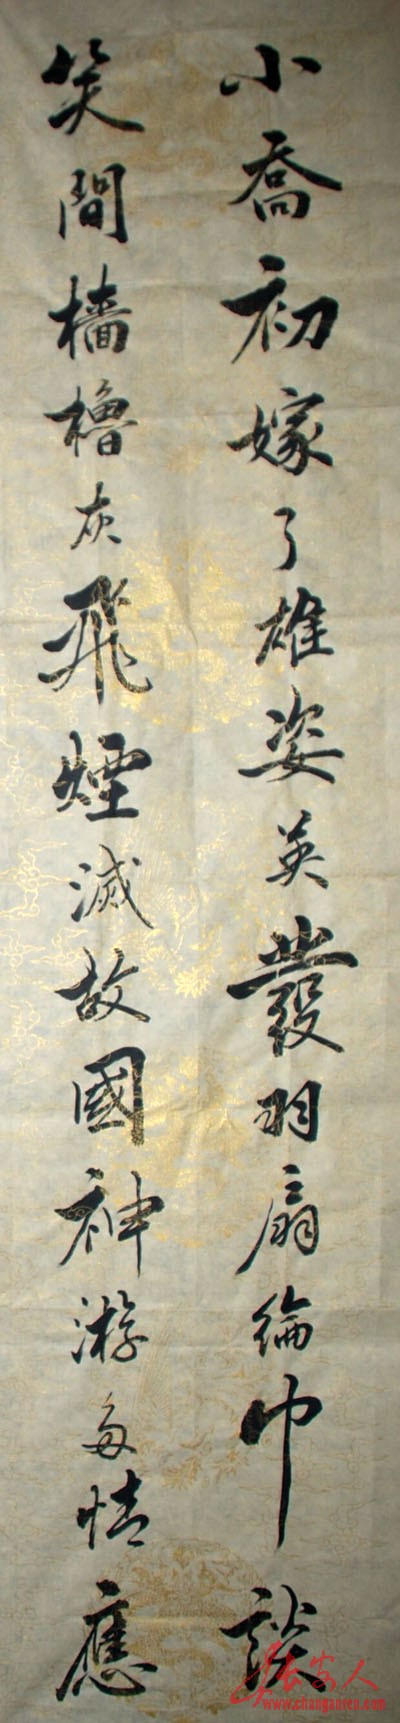 小喬初嫁了雄姿英發羽扇綸巾談
笑間檣櫓灰飛煙滅故國神游多情應
长安人
www.changanren.com